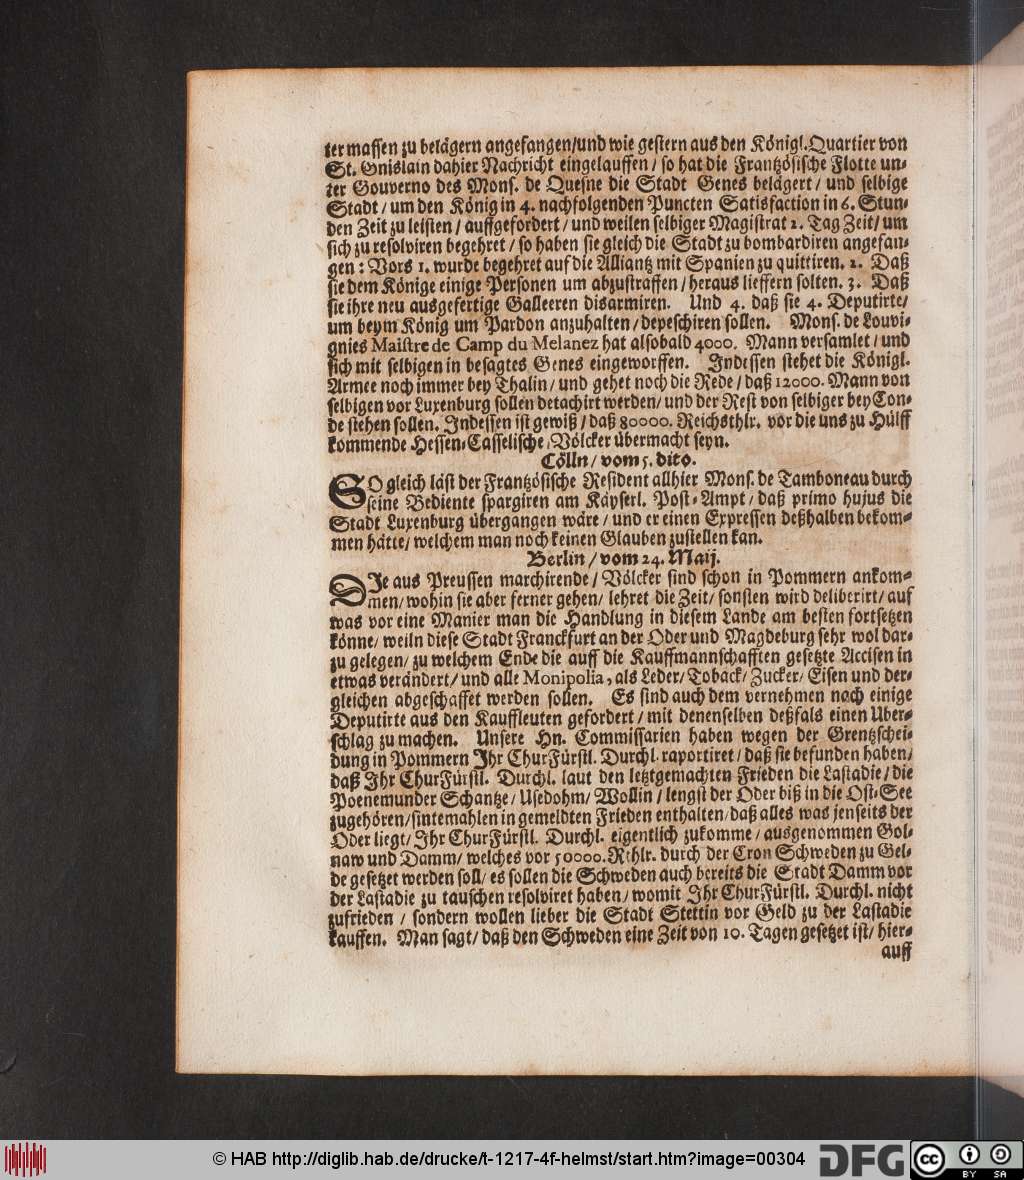 ter massen zu belägern angefangen/und wie gestern aus den Königl. Quartier von
St. Gnislain dahier Nachricht eingelauffen / so hat die Frantzösische Flotte un-
ter Gouverno des Mons. de Quesne die Stadt Genes belägert / und selbige
Stadt / um den König in 4. nachfolgenden Puncten Satisfaction in 6. Stun-
den Zeit zu leisten / auffgefordert / und weilen selbiger Magistrat 2. Tag Zeit/ um
sich zu resolviren begehret / so haben sie gleich die Stadt zu bombardiren angefan-
gen : Vors 1. wurde begehret auf die Alliantz mit Spanien zu quittiren. 2. Daß
sie dem Könige einige Personen um abzustraffen / heraus lieffern solten. 3. Daß
sie ihre neu ausgefertige Galleeren disarmiren. Und 4. daß sie 4. Deputirte/
um beym König um Pardon anzuhalten / depeschiren sollen. Mons. de Louvi-
gnies Maistre de Camp du Melanez hat alsobald 4000. Mann versamlet / und
sich mit selbigen in besagtes Genes eingeworffen. Indessen stehet die Königl.
Armee noch immer bey Thalin / und gehet noch die Rede / daß 12000. Mann von
selbigen vor Luxenburg sollen detachirt werden/ und der Rest von selbiger bey Con-
de stehen sollen. Indessen ist gewiß / daß 80000. Reichsthlr. vor die uns zu Hülff
kommende Hessen-Casselische Völcker übermacht seyn.
Cölln / vom 5. dito.
SO gleich läst der Frantzösische Resident allhier Mons. de Tamboneau durch
seine Bediente spargiren am Käyserl. Post-Ampt / daß primo hujus die
Stadt Luxenburg übergangen wäre / und er einen Expressen deßhalben bekom-
men hätte/ welchem man noch keinen Glauben zustellen kan.
Berlin / vom 24. Maij.
DIe aus Preussen marchirende / Völcker sind schon in Pommern ankom-
men/ wohin sie aber ferner gehen/ lehret die Zeit/ sonsten wird deliberirt/ auf
was vor eine Manier man die Handlung in diesem Lande am besten fortsetzen
könne/ weiln diese Stadt Franckfurt an der Oder und Magdeburg sehr wol dar-
zu gelegen/ zu welchem Ende die auff die Kauffmannschafften gesetzte Accisen in
etwas verändert/ und alle Monipolia, als Leder/ Toback/ Zucker/ Eisen und der-
gleichen abgeschaffet werden sollen. Es sind auch dem vernehmen nach einige
Deputirte aus den Kauffleuten gefordert / mit denenselben deßfals einen Uber-
schlag zu machen. Unsere Hn. Commissarien haben wegen der Grentzschei-
dung in Pommern Ihr ChurFürstl. Durchl. raportiret / daß sie befunden haben/
daß Ihr ChurFürstl. Durchl. laut den letztgemachten Frieden die Lastadie / die
Poenemunder Schantze/ Usedohm/ Wollin / lengst der Oder biß in die Ost-See
zugehören/ sintemahlen in gemeldten Frieden enthalten/ daß alles was jenseits der
Oder liegt/ Ihr ChurFürstl. Durchl. eigentlich zukomme / ausgenommen Gol-
naw und Damm/ welches vor 50000. Rthlr. durch der Cron Schweden zu Gel-
de gesetzet werden soll/ es sollen die Schweden auch bereits die Stadt Damm vor
der Lastadie zu tauschen resolviret haben/ womit Ihr ChurFürstl. Durchl. nicht
zufrieden / sondern wollen lieber die Stadt Stettin vor Geld zu der Lastadie
kauffen. Man sagt/ daß den Schweden eine Zeit von 10. Tagen gesetzet ist/ hier-
auff
© HAB http://diglib.hab.de/drucke/t-1217-4f-helmst/start.htm?image=00304
DFG
cc BY SA